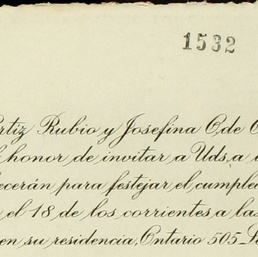 1532
rtiz Rubio y Josefina C. de O
l honor de invitar a Uds. a
ecerán para festejar el cumple
el 18 de los corrientes a las
en su residencia, Ontario 505